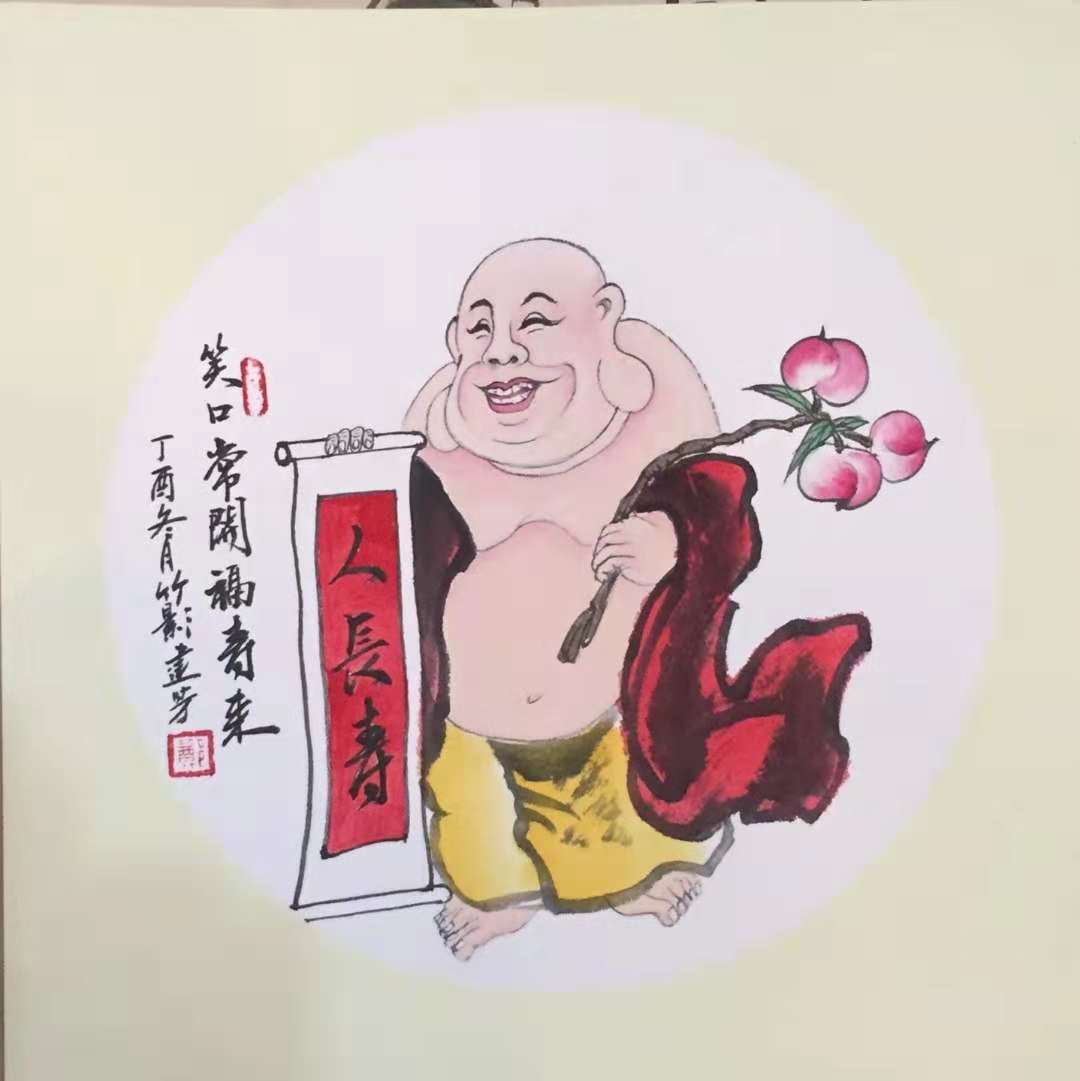 笑口常開福壽来
丁酉冬月竹影建芳
人長壽